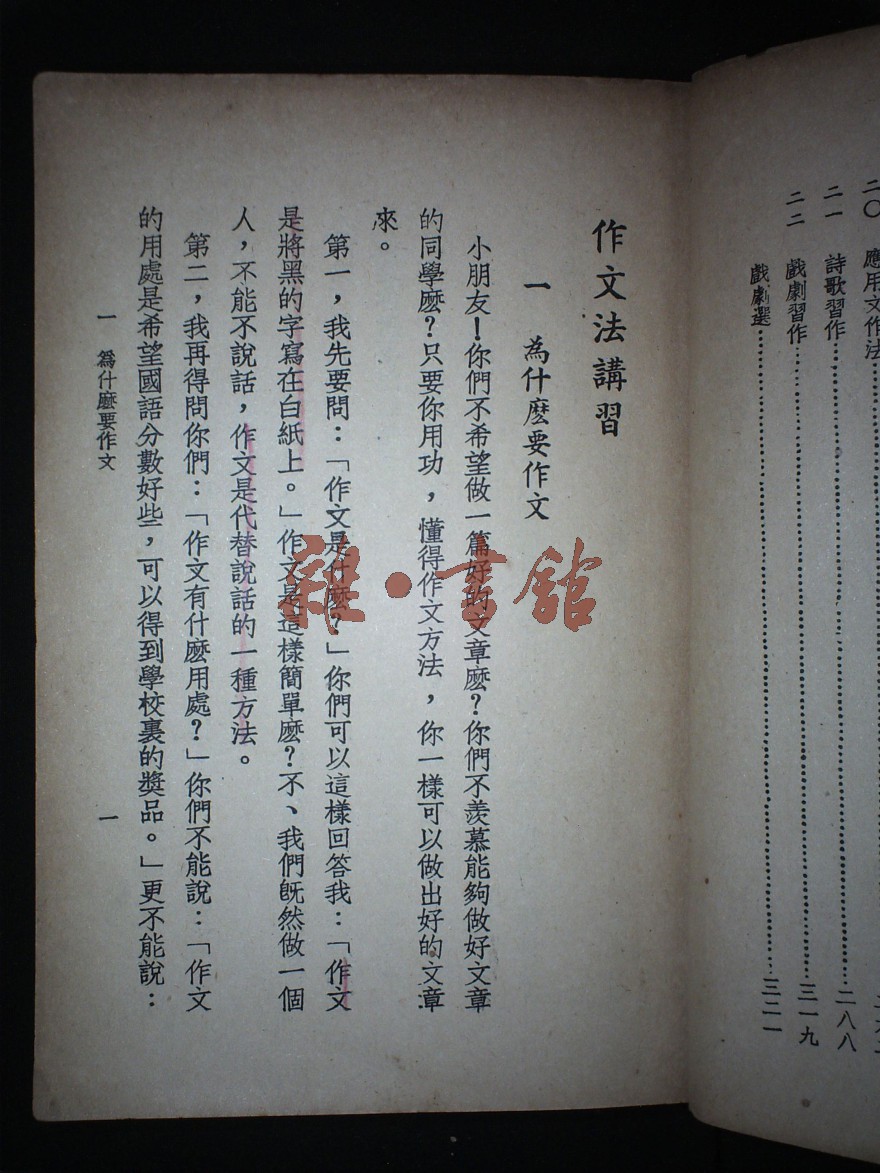 二〇 應用文作法
二一 詩歌習作……二八八
二二 戲劇習作……三一九
戲劇選……三二一
作文法講習
一 為什麼要作文
小朋友！你們不希望做一篇好的文章麼？你們不羨慕能夠做好文章
的同學麼？只要你用功，懂得作文方法，你一樣可以做出好的文章
來。
第一，我先要問：「作文是什麼？」你們可以這樣回答我：「作文
是將黑的字寫在白紙上。」作文是這樣簡單麼？不、我們既然做一個
人，不能不說話，作文是代替說話的一種方法。
第二，我再得問你們：「作文有什麼用處？」你們不能說：「作文
的用處是希望國語分數好些，可以得到學校裏的獎品。」更不能說：
一 為什麼要作文 一
雜·書館